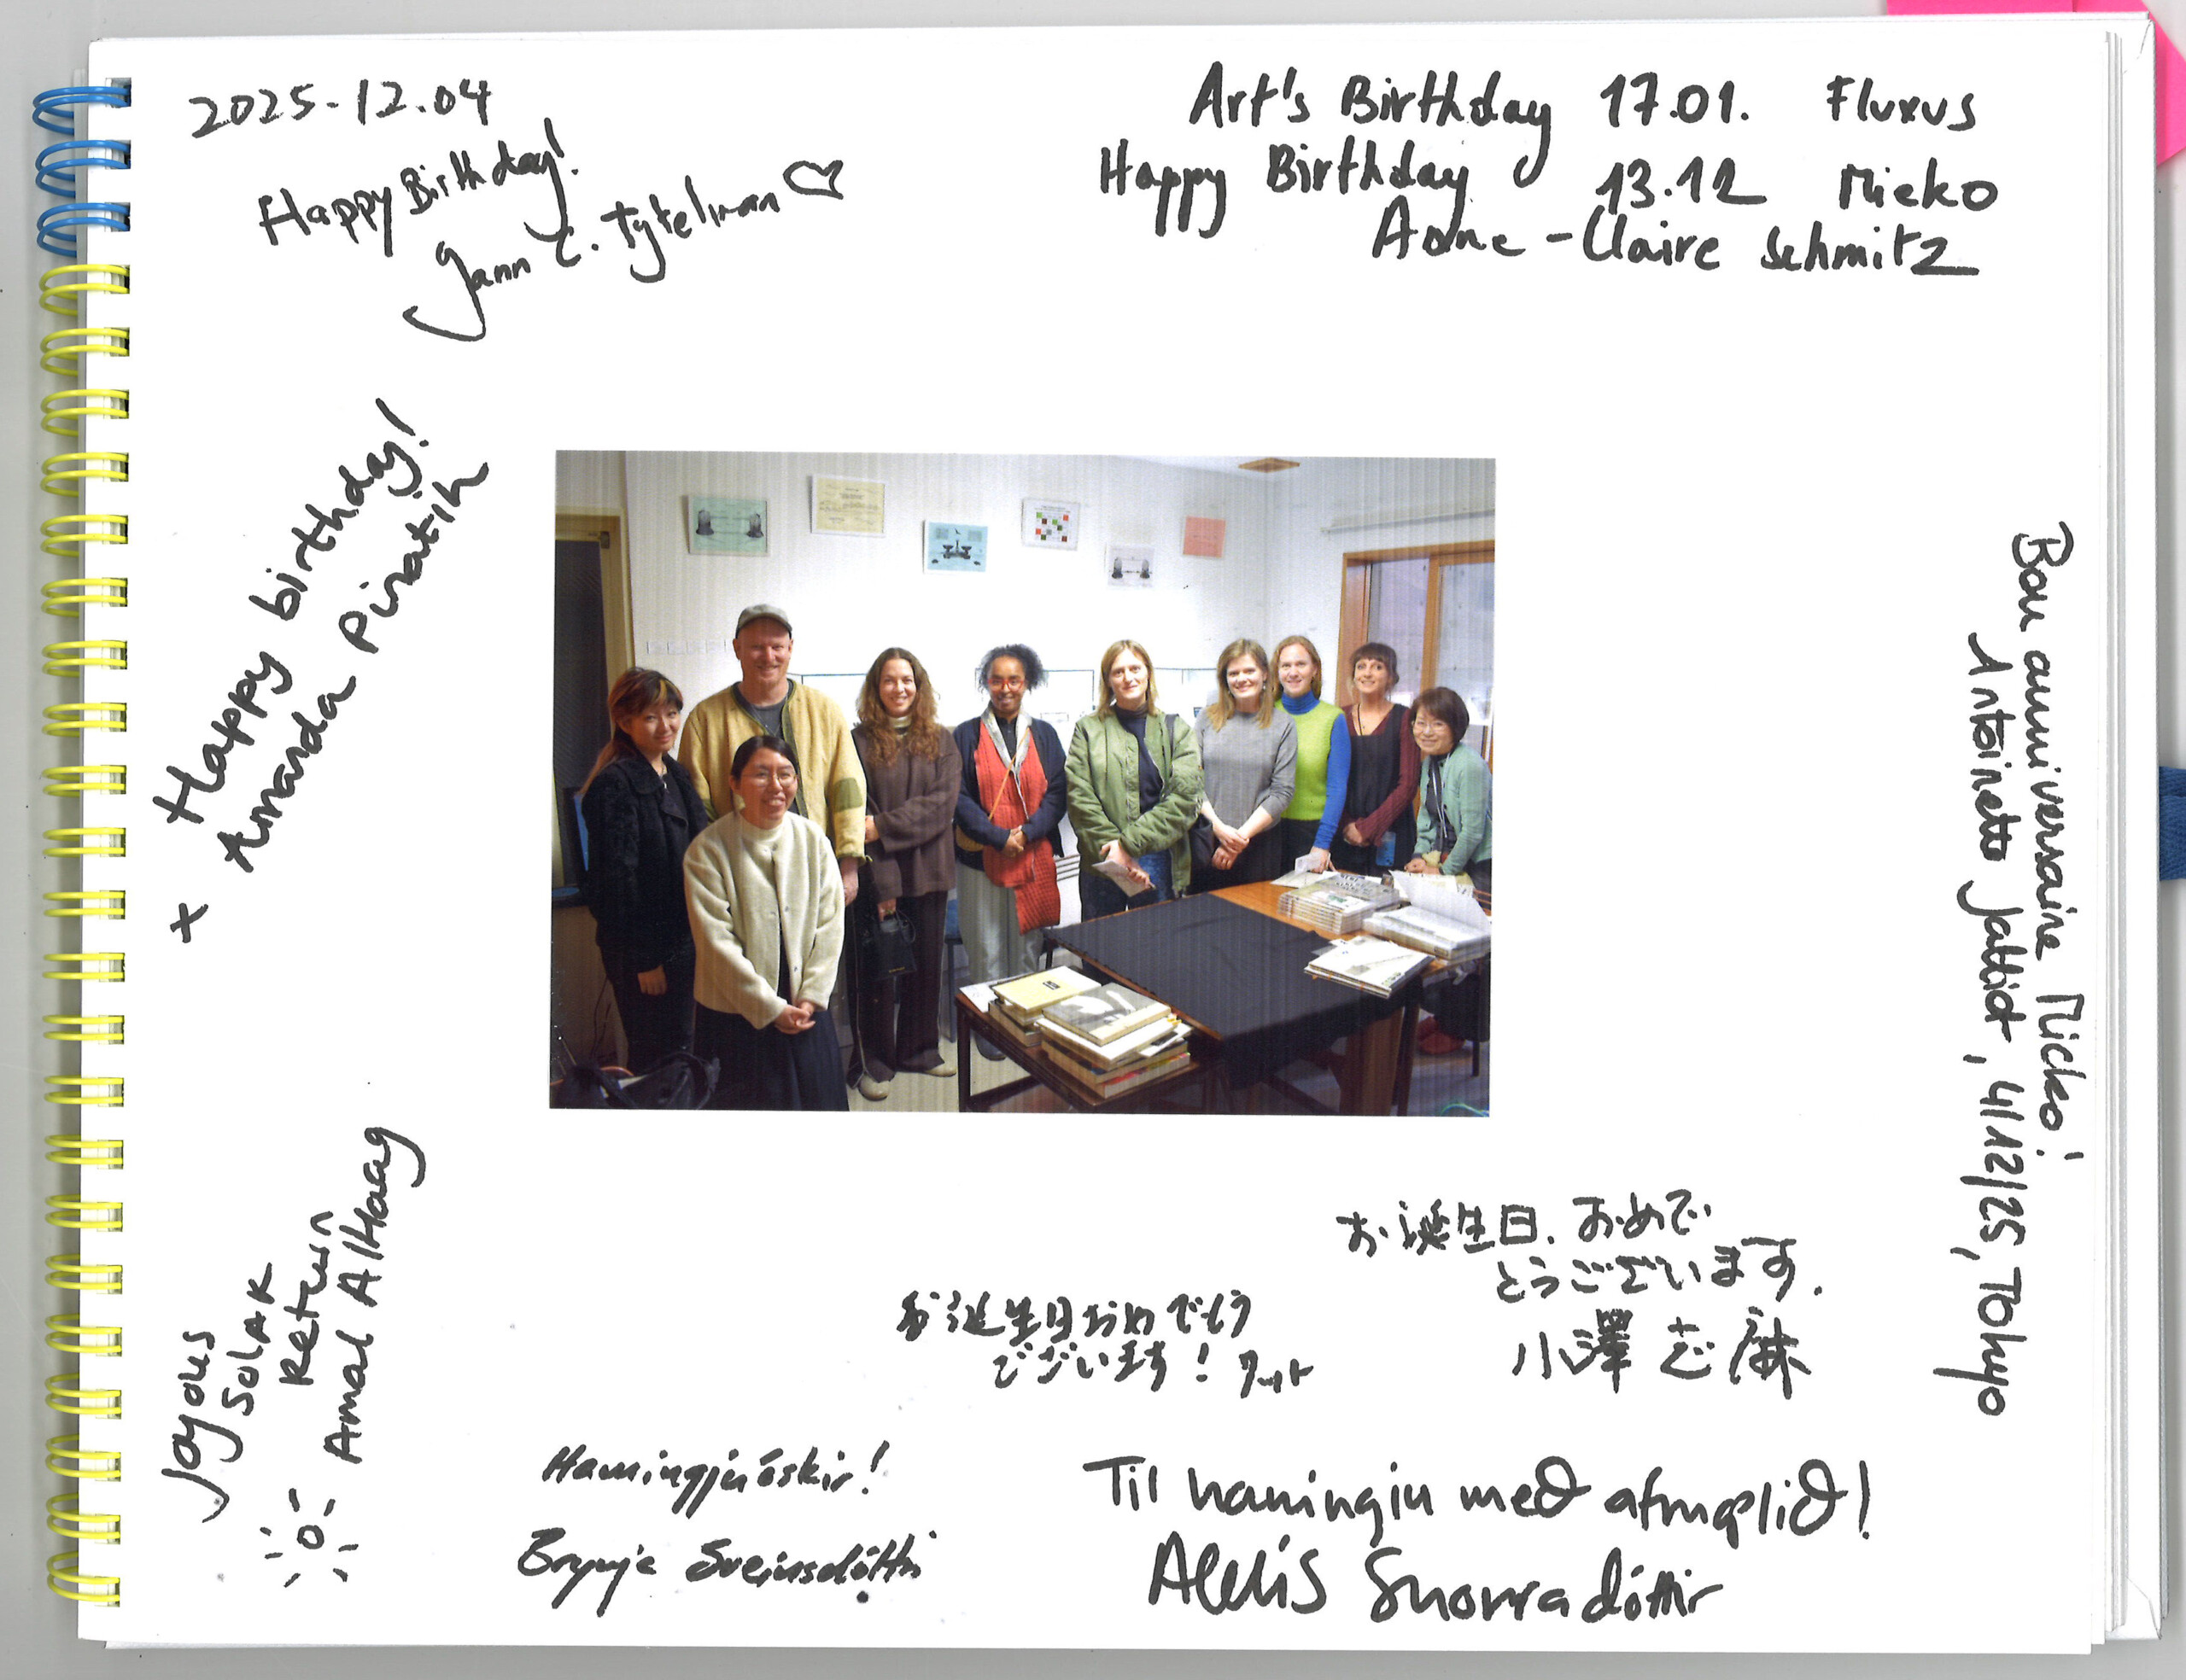 2025-12.04
Happy Birthday!
Yann C. Tytelman
Art's Birthday 17.01. Fluxus
Happy Birthday 13.12 Mieko
Anne-Claire Schmitz
Happy birthday!
Amanda Piratih
Bon anniversaire Mieko!
Antoinette Jattiot, 4/12/25, Tokyo
Joyous
Solar
Return
Amal Alhaag
お誕生日.おめで
とうございます.
小澤 志麻
お誕生日おめでとう
ございます!
Hamingjuóskir!
Brynja Sveinsdóttir
Til hamingju með afmælið!
Aldís Snorradóttir